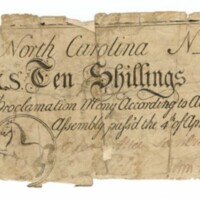 North Carolina N
S. Ten Shillings
Proclamation Mony According to A
Assembly pass'd the 4th of Ap